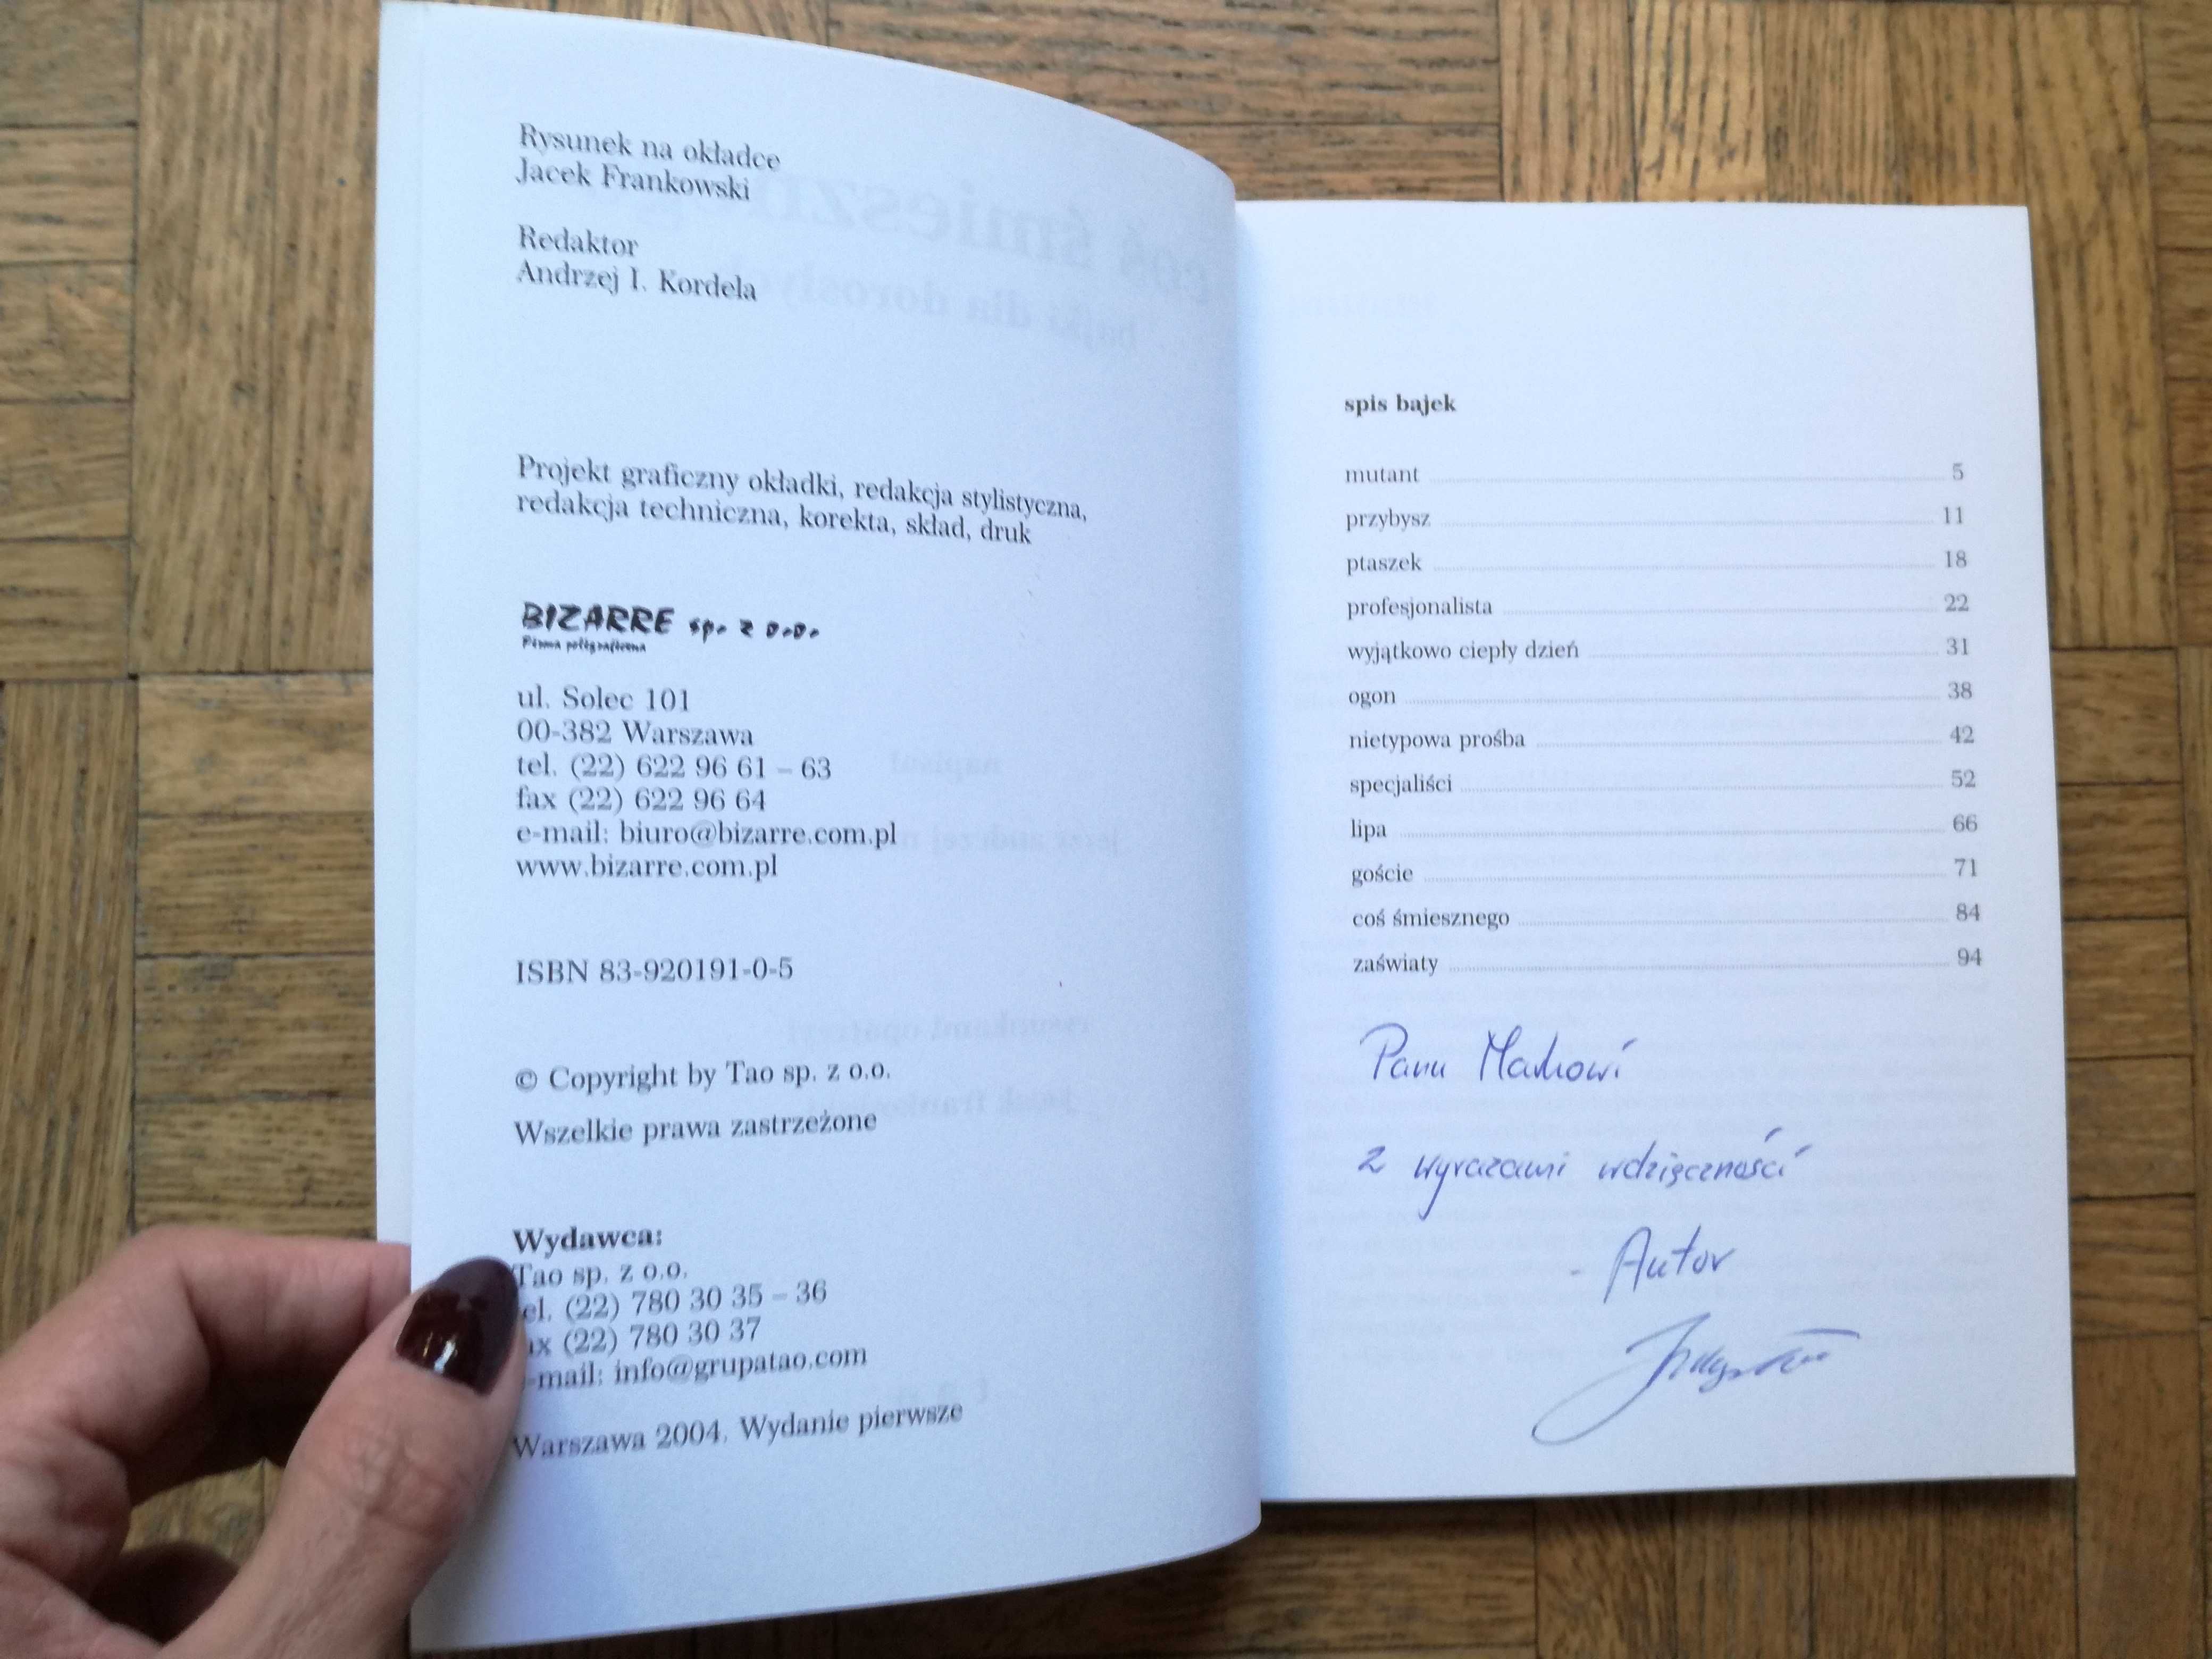 Rysunek na okładce
Jacek Frankowski
Redaktor
Andrzej I. Kordela
Projekt graficzny okładki, redakcja stylistyczna,
redakcja techniczna, korekta, skład, druk
BIZARRE sp. z o.o.
Firma poligraficzna
ul. Solec 101
00-382 Warszawa
tel. (22) 622 96 61 – 63
fax (22) 622 96 64
e-mail: biuro@bizarre.com.pl
www.bizarre.com.pl
ISBN 83-920191-0-5
© Copyright by Tao sp. z o.o.
Wszelkie prawa zastrzeżone
Wydawca:
Tao sp. z o.o.
el. (22) 780 30 35 – 36
ax (22) 780 30 37
-mail: info@grupatao.com
Warszawa 2004. Wydanie pierwsze
spis bajek
mutant 5
przybysz 11
ptaszek 18
profesjonalista 22
wyjątkowo ciepły dzień 31
ogon 38
nietypowa prośba 42
specjaliści 52
lipa 66
goście 71
coś śmiesznego 84
zaświaty 94
Panu Markowi
z wyrazami wdzięczności
- Autor